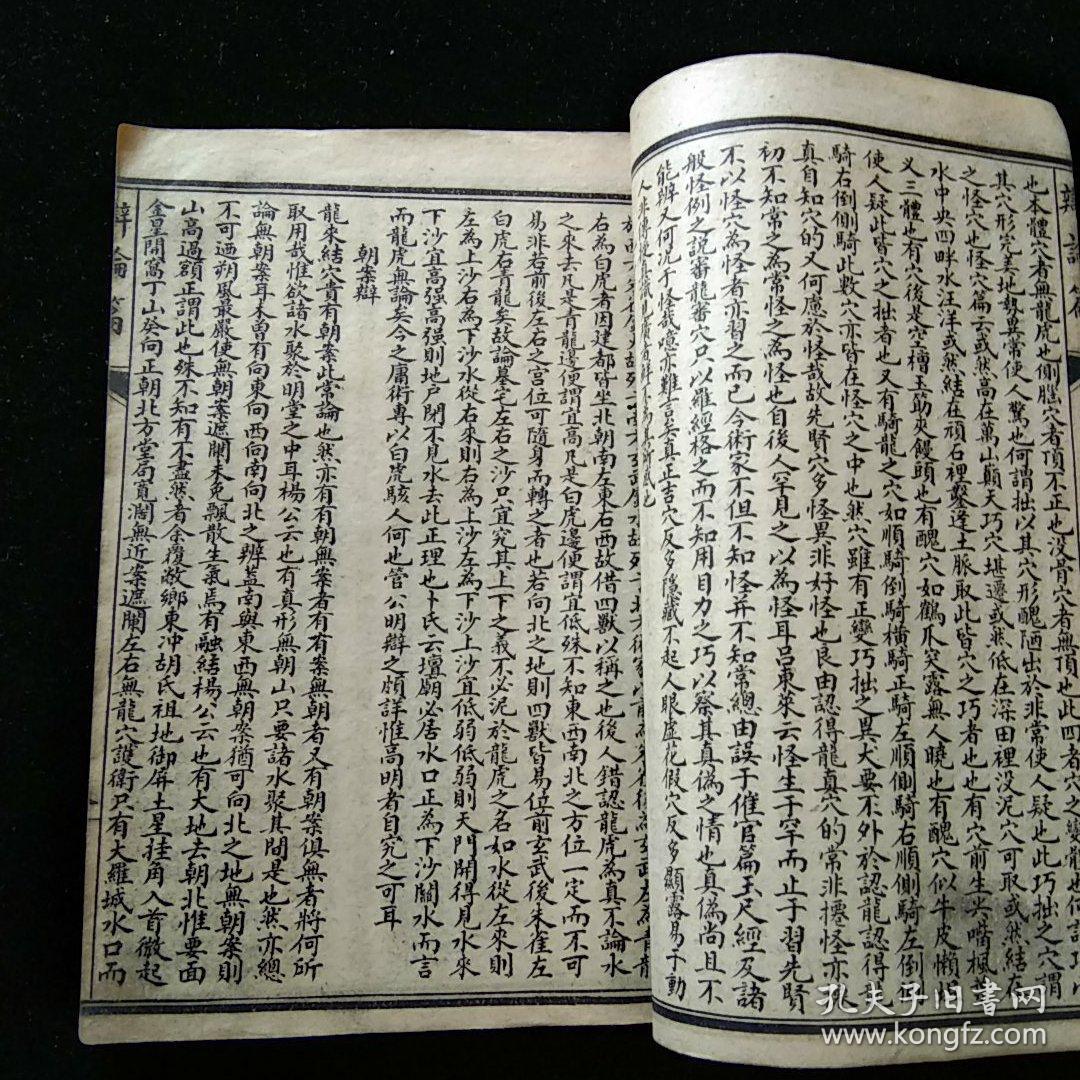 辯論篇
也本體穴者無龍虎也側㬹穴者頂不正也没骨穴者無頂也此四者穴之變體也何
其穴形完美地勢異常使人驚也何謂拙以其穴形醜陋出於非常使人疑也此巧拙之穴謂
之怪穴也怪穴篇云或然高在萬山巔天巧穴堪遷或然低在深田裡没泥穴可取或然結在
水中央四畔水汪洋或然結在頑石裡鑿達土脈取此皆穴之巧者也也有穴前生尖嘴楓葉
三體也有穴後是空槽玉筯夾饅頭也有醜穴如鶴爪突露無人曉也有醜穴似牛皮懶坦
使人疑此皆穴之拙者也又有騎龍之穴如順騎倒騎橫騎正騎左順側騎右順側騎左倒側
騎右倒側騎此數穴亦皆在怪穴之中也然穴雖有正變巧拙之異大要不外於認龍認得龍
真自知穴的又何慮於怪哉故先賢穴多怪異非好怪也良由認得龍真穴的常非擾怪亦
初不知常之為常怪之為怪也自後人罕見之以為怪耳呂東萊云怪生于罕而止于習先賢
不以怪穴為怪者亦習之而已今術家不但不知怪并不知常總由誤于催官篇玉尺經及諸
般怪例之説審龍番穴只以羅經格之而不知用目力之巧以察其真偽之情也真偽尚且不
能辨又何況于怪哉噫亦難言矣真正吉穴反多隱藏不起人眼虛花假穴反多顯露易于動
人非傳授真
右為白虎者因建都皆坐北朝南左東右西故借四獸以稱之也後人錯認龍虎為真不論水
之來去凡是青龍邊便謂宜高凡是白虎邊便謂宜低殊不知東西南北之方位一定而不可
易非若前後左右之宮位可隨身而轉之者也若向北之地則四獸皆易位前玄武後朱雀左
白虎右青龍矣故論墓宅左右之沙只宜究其上下之義不必泥於龍虎之名如水從左來則
左為上沙右為下沙水從右來則右為上沙左為下沙上沙宜低弱低弱則天門開得見水來
下沙宜高強高強則地戶閉不見水去此正理也卜氏云壇廟必居水口正為下沙關水而言
而龍虎無論矣今之庸術專以白虎駭人何也管公明辯之頗詳惟高明者自究之可耳
朝案辯
龍來結穴貴有朝案此常論也然亦有有朝無案者有有案無朝者又有朝案俱無者將何所
取用哉惟欲諸水聚於明堂之中耳楊公云也有真形無朝山只要諸水聚其間是也然亦總
論無朝案耳未曾有向東向西向南向北之辨蓋南與東西無朝案猶可向北之地無朝案則
不可迺朔風最嚴使無朝案遮闌未免飄散生氣焉有融結楊公云也有大地去朝北惟要面
山高過額正謂此也殊不知有不盡然者余覆敝鄉東冲胡氏祖地御屏土星挂角入首微起
金星開窩丁山癸向正朝北方堂局寬濶無近案遮闌左右無龍穴護衛只有大羅城水口而
辯論篇
孔夫子旧书网
www.kongfz.com